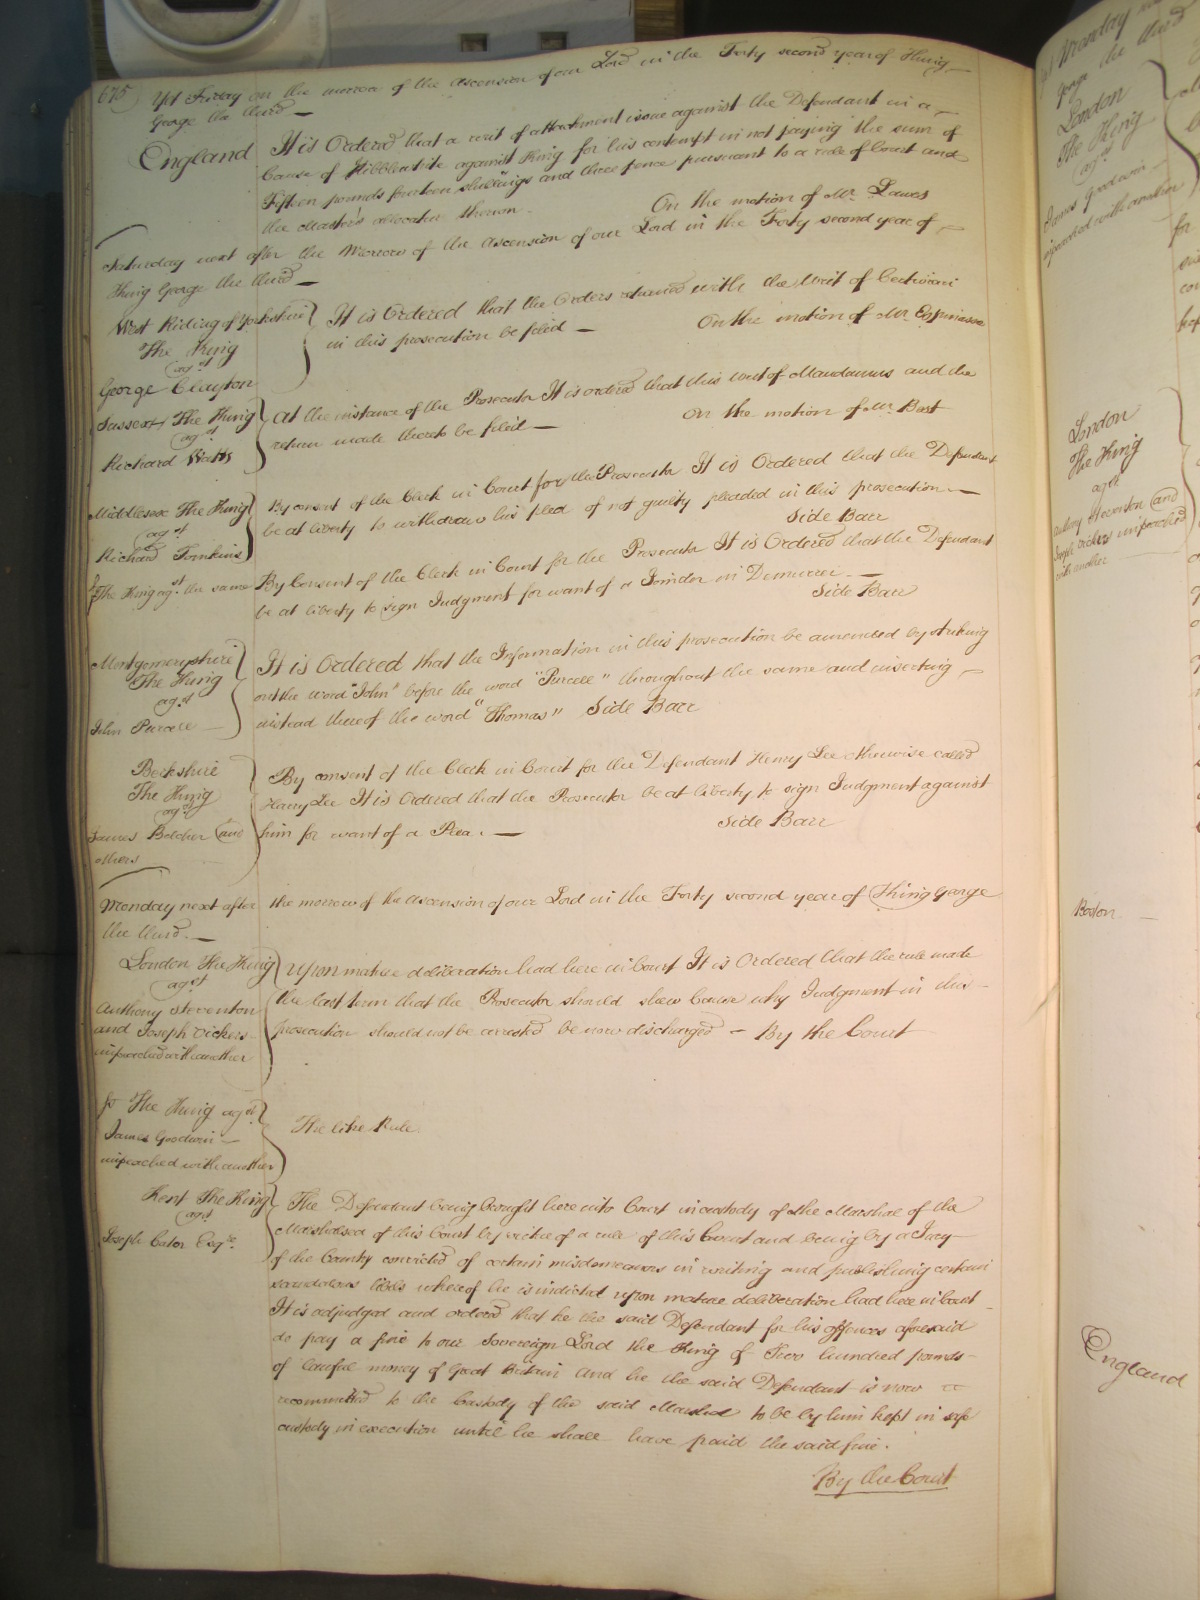 675
Yet Friday on the morrow of the Ascension of our Lord in the Forty second year of King
George the third
England It is Ordered that a writ of attachment issue against the Defendant in a
Cause of Hibblewhite against King for his contempt in not paying the sum of
Fifteen pounds fourteen shillings and three pence pursuant to a rule of Court and
the Master's allocatur thereon. On the motion of Mr. Lawes
Saturday next after the Morrow of the Ascension of our Lord in the Forty second year of
King George the third
West Riding of Yorkshire
The King
agst
George Clayton
It is Ordered that the Orders returned with the Writ of Certiorari
in this prosecution be filed On the motion of Mr. Espinasse
Sussex The King
agst
Richard Watts
At the instance of the Prosecutor It is ordered that this writ of Mandamus and the
return made thereto be filed On the motion of Mr. Best
Middlesex The King
agst
Richard Tomkins
By consent of the Clerk in Court for the Prosecutor It is Ordered that the Defendant
be at liberty to withdraw his plea of not guilty pleaded in this prosecution
Side Barr
The King agst the same By Consent of the Clerk in Court for the Prosecutor It is Ordered that the Defendant
be at liberty to sign Judgment for want of a Joinder in Demurrer.
Side Barr
Montgomeryshire
The King
agst
John Purcell
It is Ordered that the Information in this prosecution be amended by striking
out the word "John" before the word "Purcell" throughout the same and inserting
instead thereof the word "Thomas" Side Barr
Berkshire
The King
agst
James Belcher and
others
By consent of the Clerk in Court for the Defendant Henry Lee otherwise called
Harry Lee It is Ordered that the Prosecutor be at liberty to sign Judgment against
him for want of a Plea.
Side Barr
Monday next after the morrow of the Ascension of our Lord in the Forty second year of King George
the third.
London The King
agst
Anthony Steventon
and Joseph Vickers
impeached with another
Upon mature deliberation had here in Court It is Ordered that the rule made
the last term that the Prosecutor should shew cause why Judgment in this
prosecution should not be arrested be now discharged By the Court
The King agst
James Goodwin
impeached with another
The like Rule.
Kent The King
agst
Joseph Cator Esqre.
The Defendant being brought here into Court in custody of the Marshal of the
Marshalsea of this Court by virtue of a rule of this Court and being by a Jury
of the County convicted of certain misdemeanors in writing and publishing certain
scandalous libels whereof he is indicted upon mature deliberation had here in Court
It is adjudged and ordered that he the said Defendant for his offences aforesaid
do pay a fine to our Sovereign Lord the King of Two hundred pounds
of lawful money of Great Britain And he the said Defendant is now
recommitted to the Custody of the said Marshal to be by him kept in safe
custody in execution until he shall have paid the said fine.
By the Court
Monday
George the third
London
The King
agst
James Goodwin
impeached with another
London
The King
agst
Anthony Steventon and
Joseph Vickers impeached
with another
England